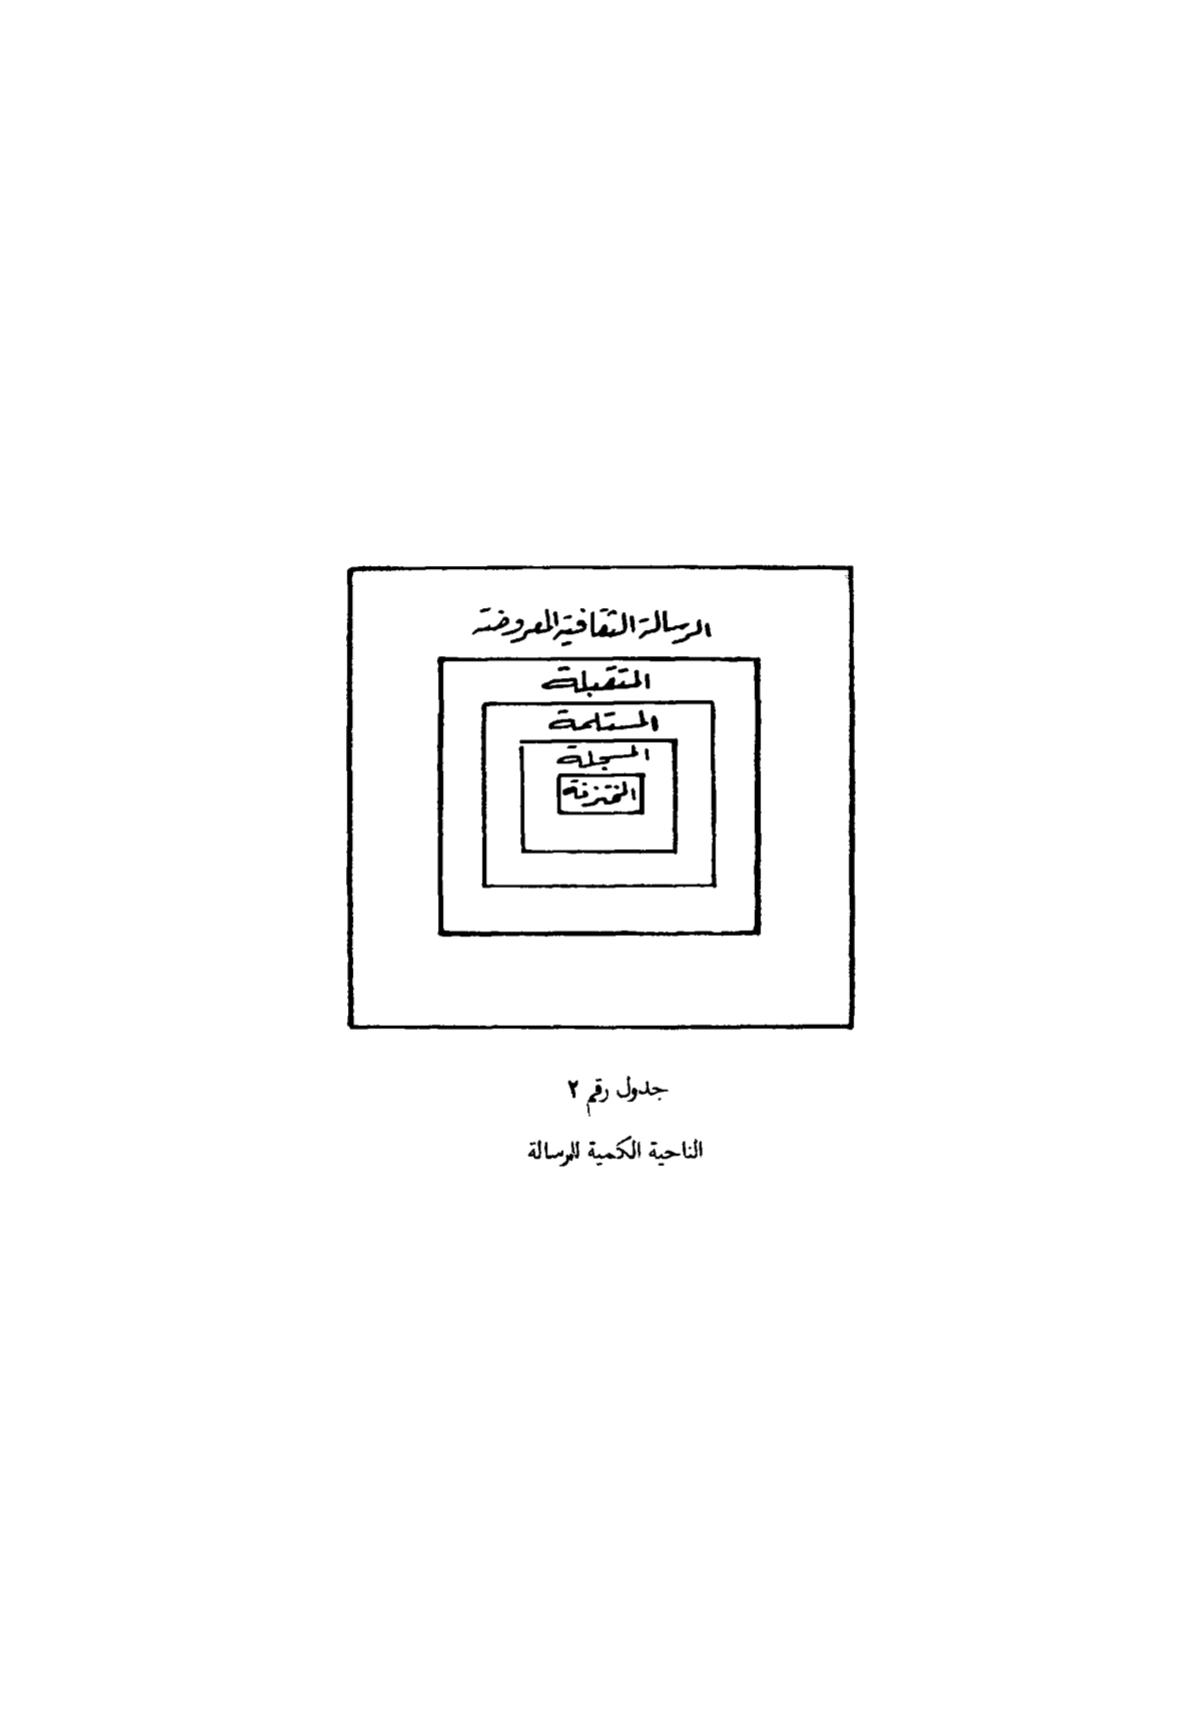 الرسالة الثقافية المعروضة
المتقبلة
المستلمة
المسجلة
المختزنة
جدول رقم ٢
الناحية الكمية للرسالة